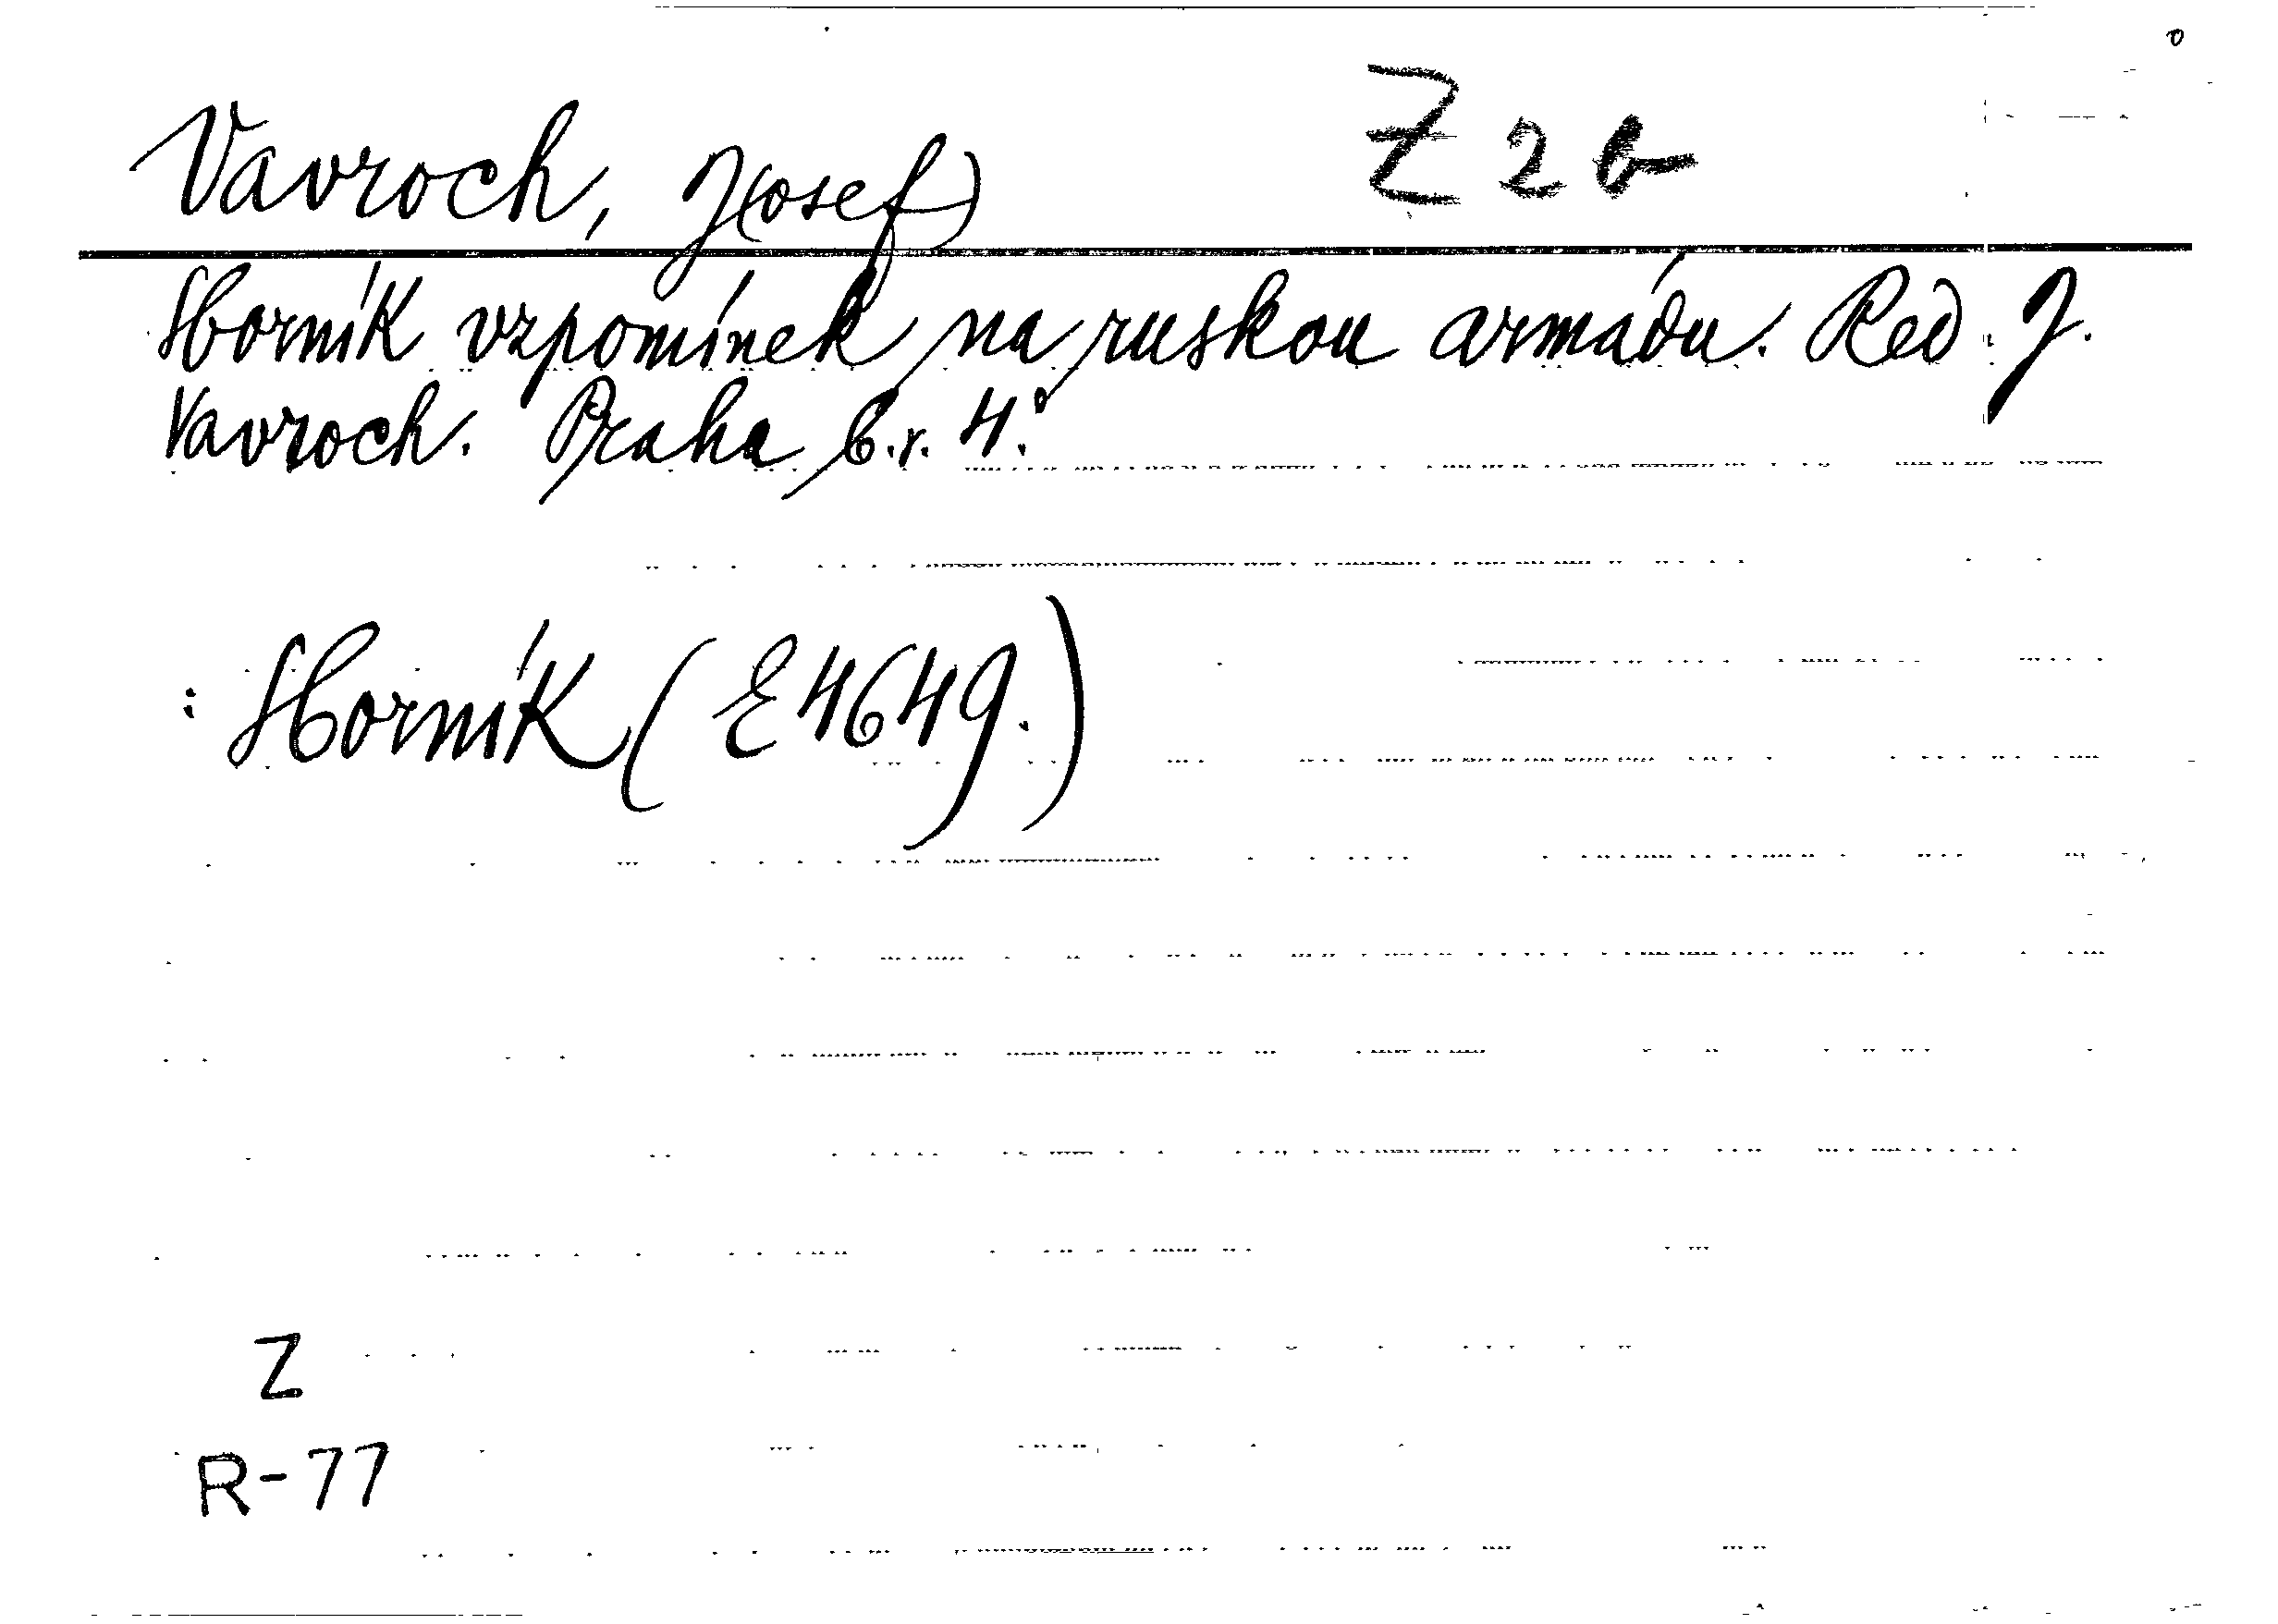 Vavroch, J(osef) Z 2 b
Sborník vzpomínek na ruskou armádu. Red. J.
Vavroch. Praha, b.r. 4.°
: Sborník (E 4649.)
Z
R-77